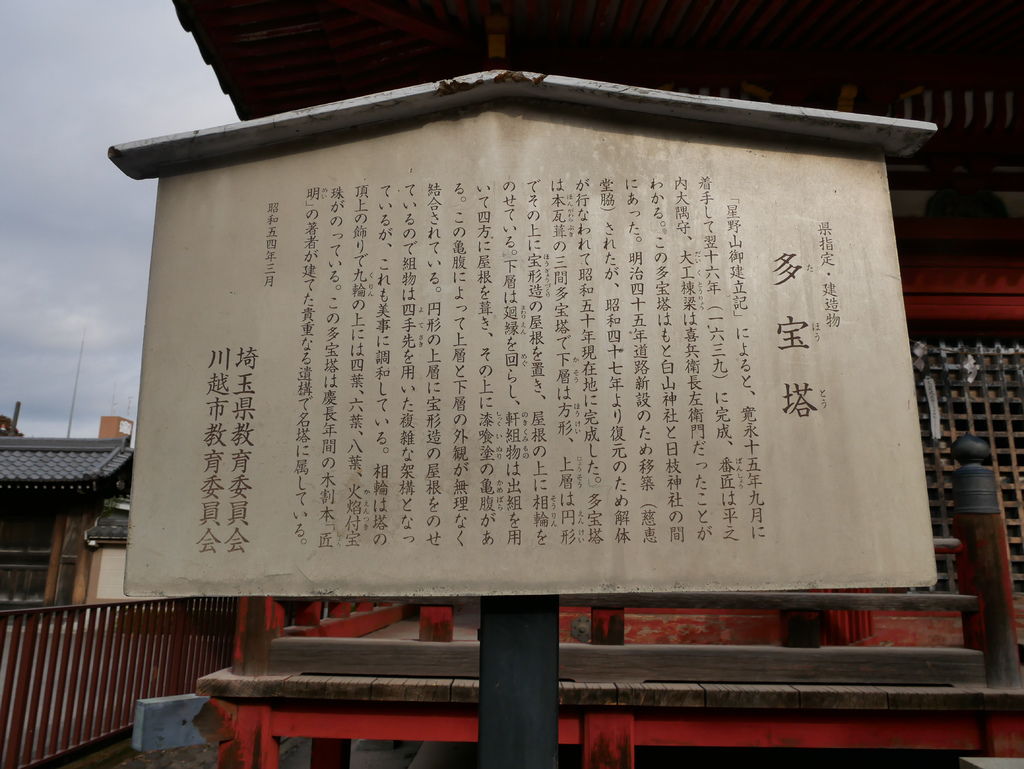 県指定・建造物
多宝塔
たほうとう
「星野山御建立記」によると、寛永十五年九月に
着手して翌十六年（一六三九）に完成、番匠は平之
ばんしょう
内大隅守、大工棟梁は喜兵衛長左衛門だったことが
だいくとうりょう
わかる。この多宝塔はもと白山神社と日枝神社の間
にあった。明治四十五年道路新設のため移築（慈恵
堂脇）されたが、昭和四十七年より復元のため解体
が行なわれて昭和五十年現在地に完成した。多宝塔
は本瓦葺の三間多宝塔で下層は方形、上層は円形
ほんがわらぶき　かそう　ほうけい　じょうそう　えんけい
でその上に宝形造の屋根を置き、屋根の上に相輪を
ほうぎょうづくり　そうりん
のせている。下層は廻縁を回らし、軒組物は出組を用
まわりえん　めぐ　のきくみもの
いて四方に屋根を葺き、その上に漆喰塗の亀腹があ
しっくいぬり　かめばら
る。この亀腹によって上層と下層の外観が無理なく
結合されている。円形の上層に宝形造の屋根をのせ
ているので組物は四手先を用いた複雑な架構となっ
よてさき
ているが、これも美事に調和している。相輪は塔の
頂上の飾りで九輪の上には四葉、六葉、八葉、火焔付宝
くりん　かえんつき
珠がのっている。この多宝塔は慶長年間の木割本「匠
しょう
明」の著者が建てた貴重なる遺構で名塔に属している。
めい
昭和五四年三月
埼玉県教育委員会
川越市教育委員会